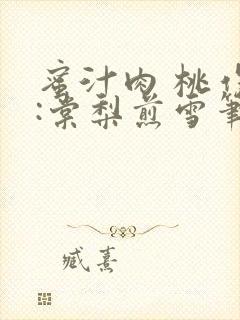 蜜汁肉桃作
:棠梨煎雪筆
臧熹